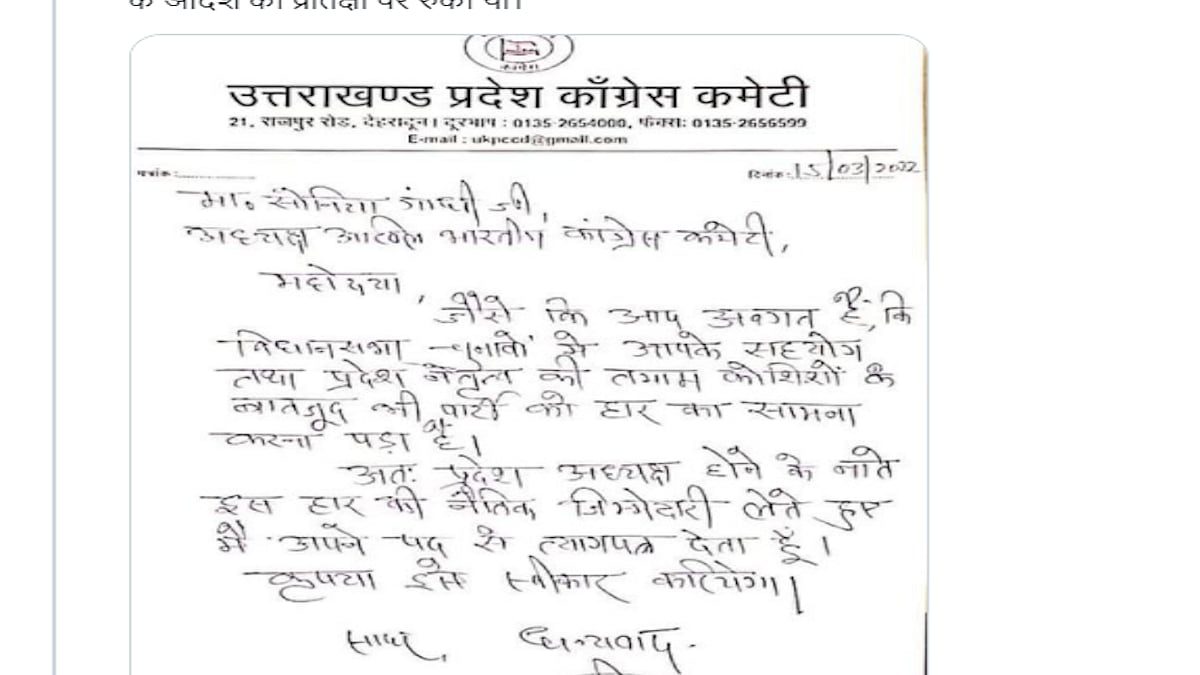 के आदेश की प्रतीक्षा पर रुका था।
कांग्रेस
उत्तराखण्ड प्रदेश काँग्रेस कमेटी
21, राजपुर रोड, देहरादून। दूरभाष : 0135-2654000, फैक्स: 0135-2656599
E-mail : ukpccd@gmail.com
पत्रांक :............
दिनांक : 15/03/2022
मा० सोनिया गांधी जी,
अध्यक्ष अखिल भारतीय कांग्रेस कमेटी,
महोदया,
जैसे कि आप अवगत हैं, कि
विधानसभा चुनावों में आपके सहयोग
तथा प्रदेश नेतृत्व की तमाम कोशिशों के
बावजूद भी पार्टी को हार का सामना
करना पड़ा है।
अतः प्रदेश अध्यक्ष होने के नाते
इस हार की नैतिक जिम्मेदारी लेते हुए
मैं अपने पद से त्यागपत्र देता हूँ।
कृपया इसे स्वीकार करियेगा।
सादर, धन्यवाद.